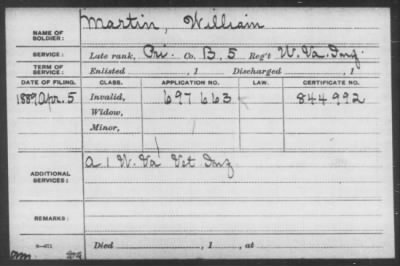 NAME OF SOLDIER: Martin, William
SERVICE: Late rank, Pri. Co. B, 5 Reg't W. Va. Inf.
TERM OF SERVICE: Enlisted , 1 Discharged , 1
DATE OF FILING. CLASS. APPLICATION NO. LAW. CERTIFICATE NO.
1889 Apr. 5 Invalid, 697 663 844,992
Widow,
Minor,
ADDITIONAL SERVICES: A 1 W. Va Vet Inf
REMARKS:
Died , 1 , at